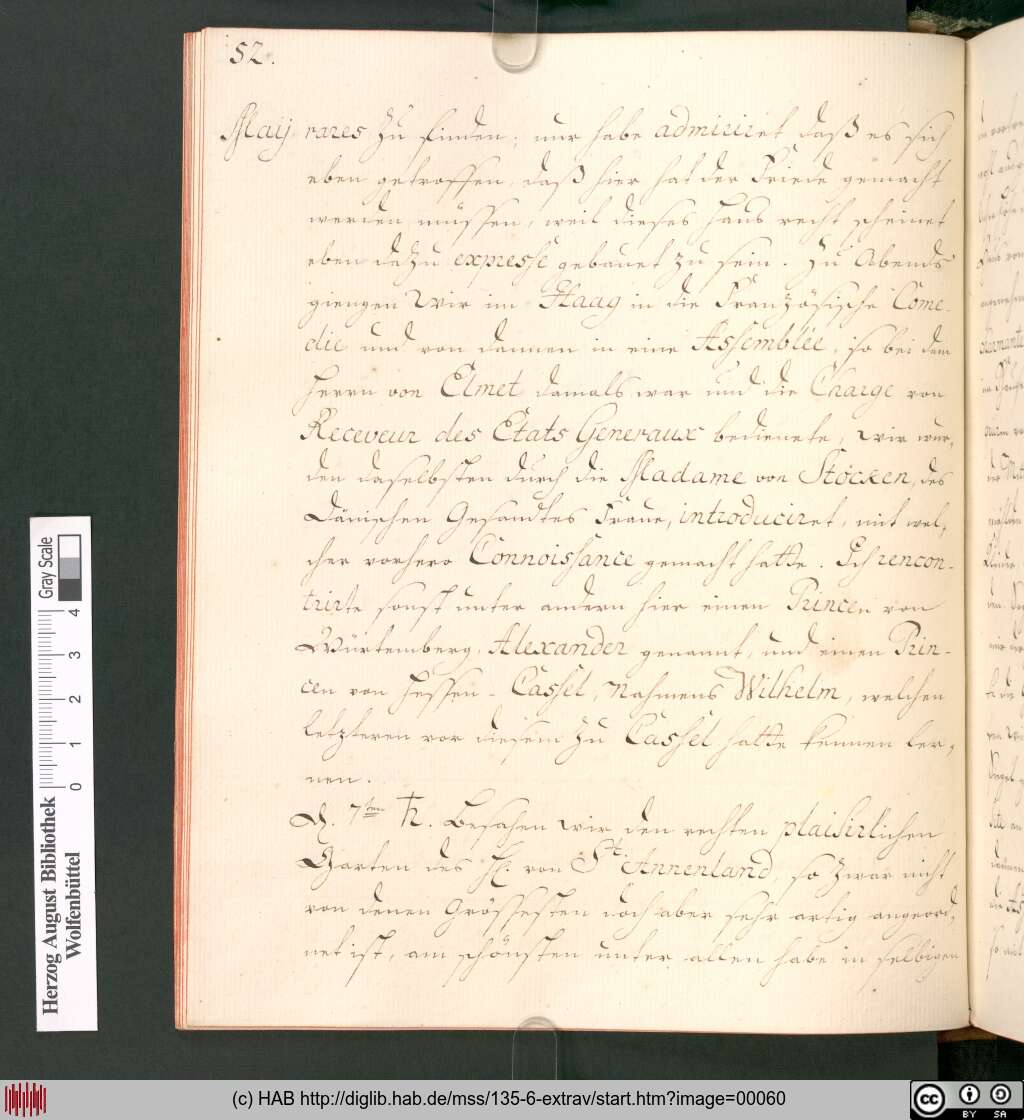 52.
Maij rares zu finden; nur habe admiriret daß es sich
eben getroffen, daß hier hat der Friede gemacht
werden müssen, weil dieses Haus recht scheinet
eben dazu expresse gebauet zu sein. Zu Abends
giengen Wir im Haag in die Französische Come-
die und von dannen in eine Assemblée, so bei dem
Herrn von Elmet damals war und die Charge von
Receveur des Etats Generaux bedienete, Wir wur,
den daselbsten durch die Madame von Stöcken, des
Dänischen Gesandtes Fraue, introduciret, mit wel,
cher vorhero Connoissance gemacht hatte. Ich rencon-
trirte sonst unter andern hier einen Princen von
Würtemberg, Alexander genannt, und einen Prin-
cen von Hessen-Cassel, Nahmens Wilhelm, welchen
letzteren vor diesem zu Cassel hatte kennen ler,
nen.
D. 7ten ♄. Besahen Wir den rechten plaisirlichen
Garten des H. von St. Annenland, so zwar nicht
von denen Grössesten doch aber sehr artig angeord,
net ist, am schönsten unter allen habe in selbigen
Herzog August Bibliothek
Wolfenbüttel
0 1 2 3 4
Gray Scale
(c) HAB http://diglib.hab.de/mss/135-6-extrav/start.htm?image=00060
cc BY SA